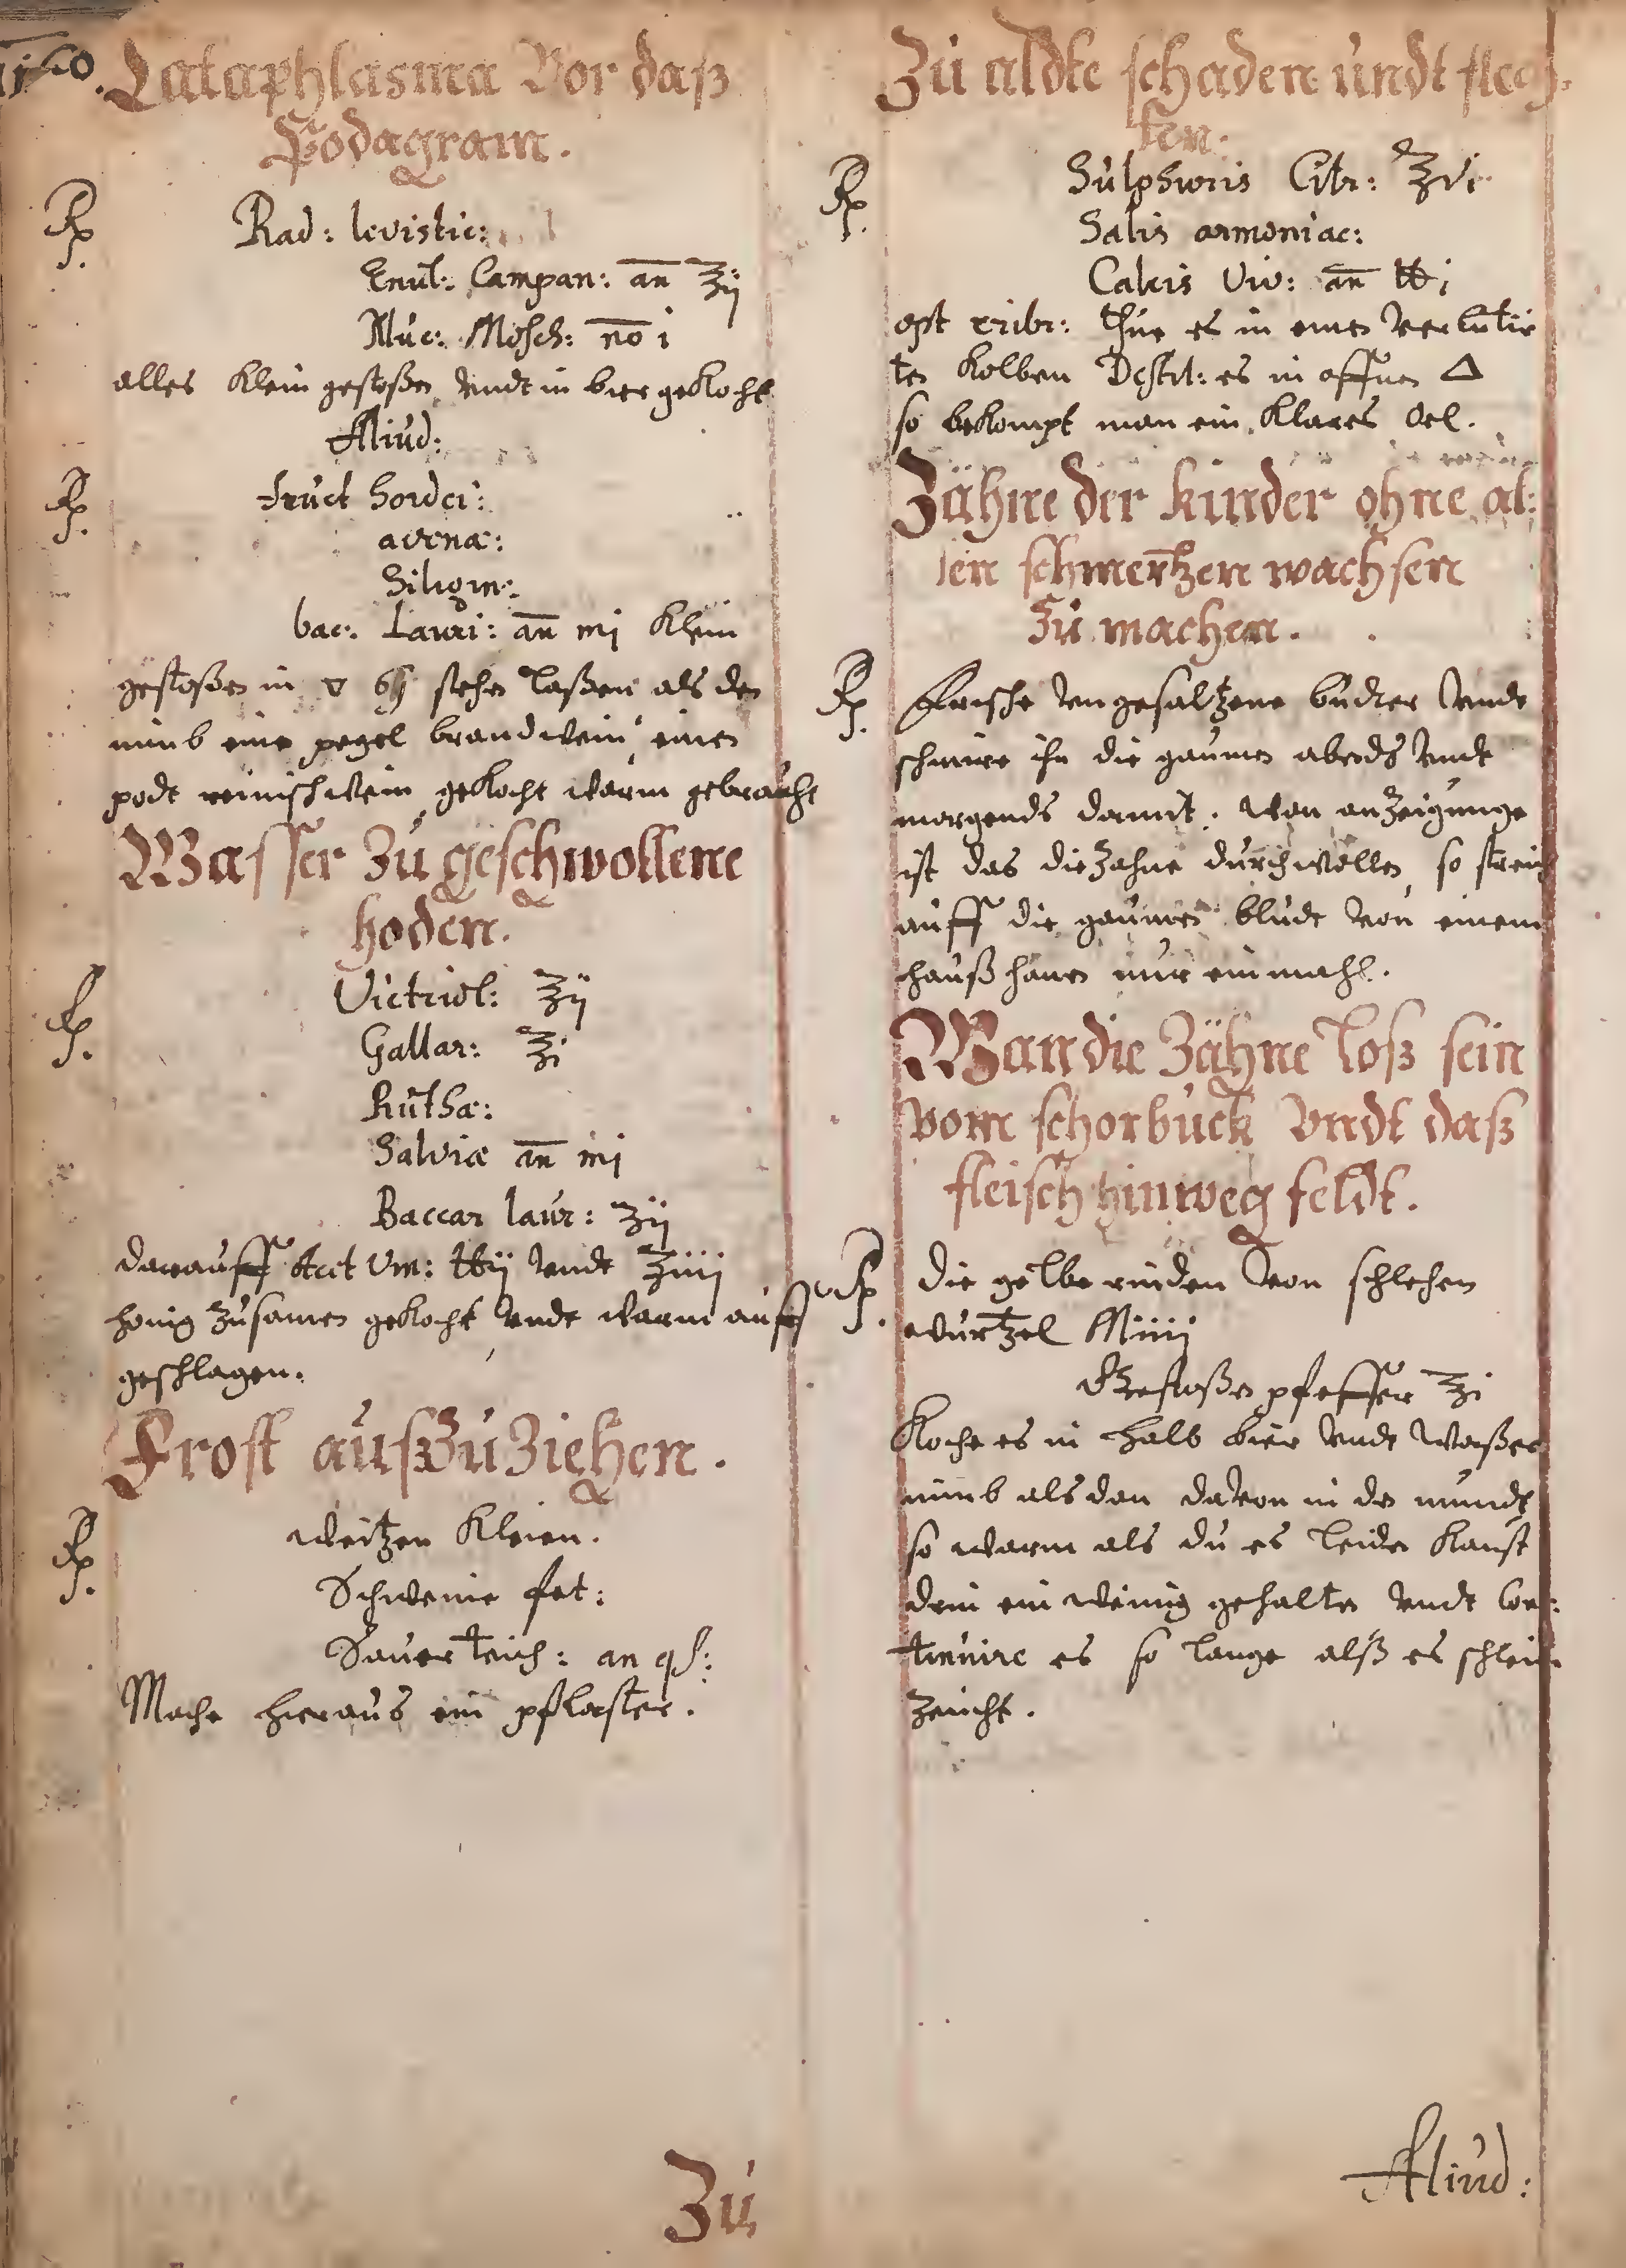 Cataphlasma Vor daß
Podagram.
Rp. Rad: levistic:
Enul: Campan: an ʒij
Nuc: Mosch: no i
alles Klein gestoßen undt in bier gekocht
Aliud:
Rp. fruct hordei:
avenæ:
Siligin:
bac: Lauri: an mj Klein
gestoßen in stehen laßen als den
nimb eine pegel brandwein einen
podt reinischwein gekocht warm gebraucht
Wasser Zu geschwollene
hoden.
Rp. Victriol: ʒij
Gallar: ʒi
Ruthæ:
Salviæ an mj
Baccar laur: ʒij
darauff Acet Vin: ℔ij undt ʒiiij
honig zusamen gekocht undt warm auff
geschlagen.
Frost außZuZiehen.
Rp. Weitzen Kleien.
Schweine fet:
Sauerteich: an qs:
Mache hieraus ein pflaster.
Zu
Zu aldte schaden undt flech-
ten.
Rp. Sulphuris Citr: ʒvi
Salis armoniac:
Calcis Viv: an ℔i
opt cribr: thue es in einen verlutir
ten Kolben Destil: es in offnen △
so bekompt man ein Klares Oel.
Zähne der kinder ohne al:
len schmertzen wachsen
Zu machen.
Rp. Frische ungesaltzene budter undt
schmire ihn die gaumen abends undt
morgends damit. Wan anzeigunge
ist das die Zahne durchwollen, so streich
auff die gaumen bludt von einem
haußhanen nur ein mahl.
Wan die Zähne loß sein
vom schorbuck Vndt daß
fleisch hinweg feldt.
Rp. die gelbe rinden von schlehen
wurtzel Miiij
Gestoßen pfeffer ʒi
Koche es in halb bier undt Waßer
nimb als dan davon in den mundt
so warm als du es leiden Kanst
drin ein wenig gehalten undt con:
tinuire es so lange alß es schleim
zeucht.
Aliud: